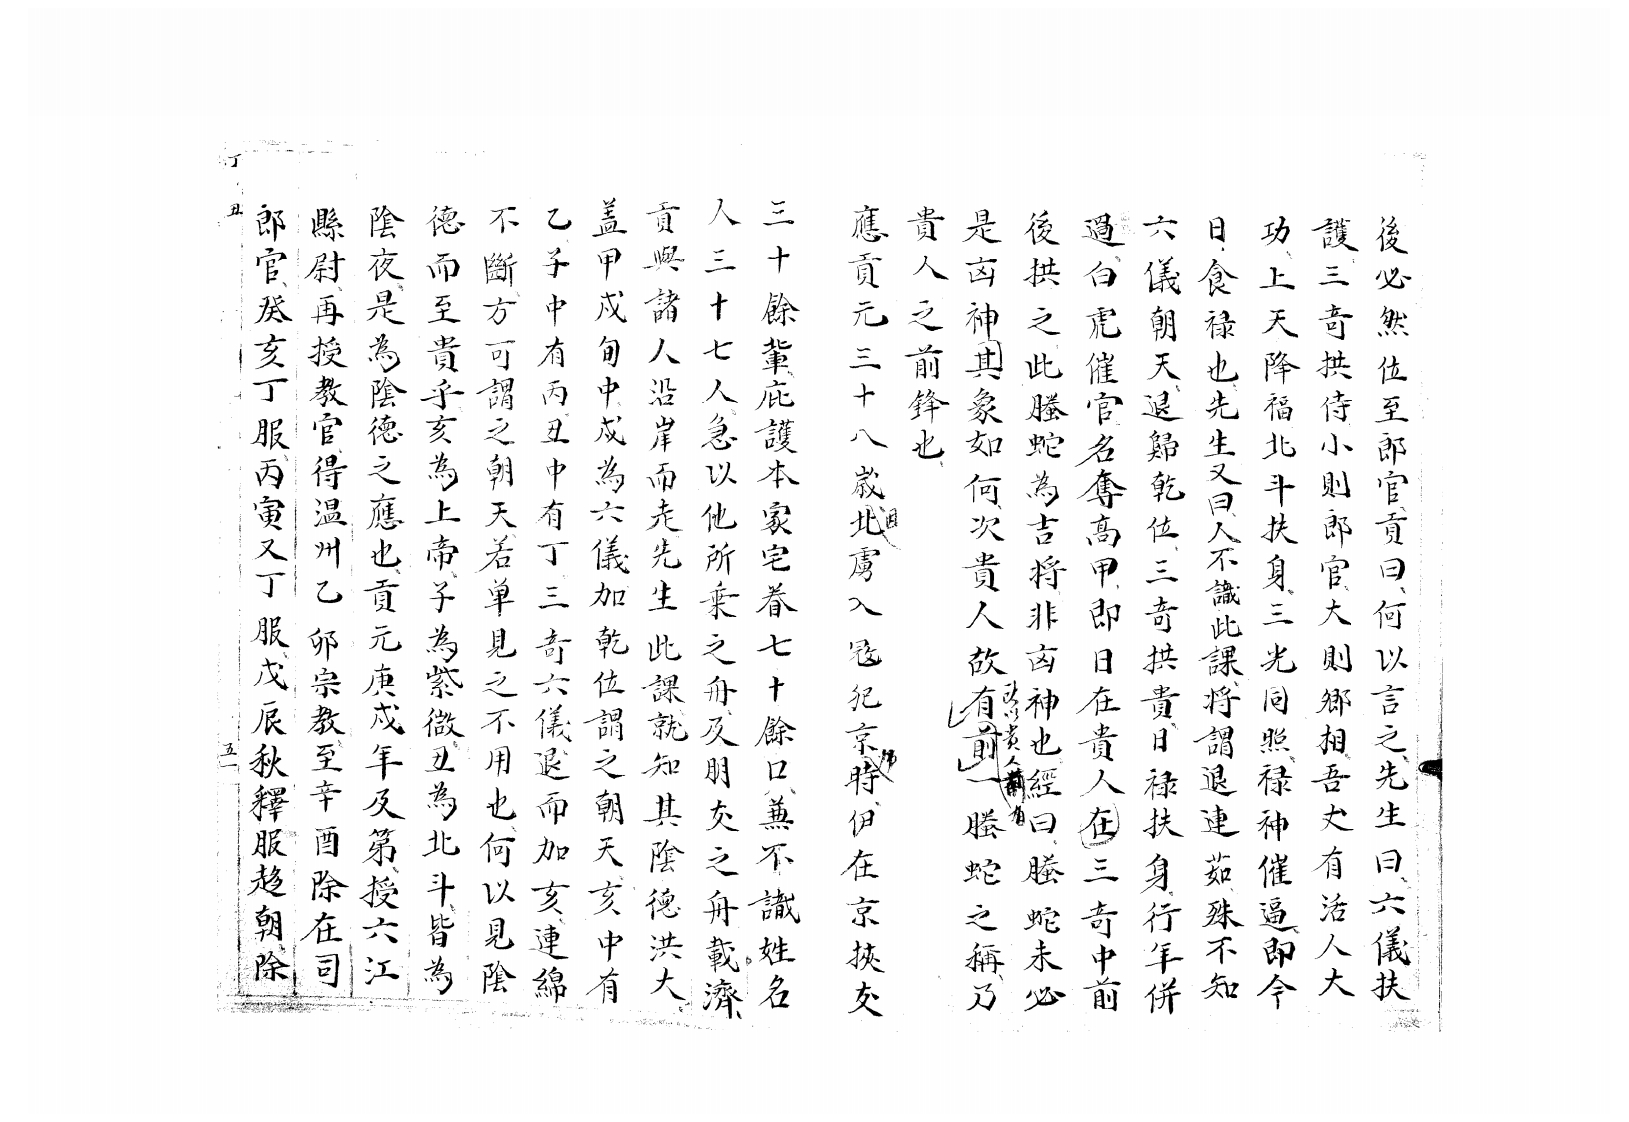 後必然位至郎官貢曰何以言之先生曰六儀扶
護三竒拱侍小則郎官大則鄉相吾丈有活人大
功上天降福北斗扶身三光同照禄神催逼即今
日食禄也先生又曰人不識此課將謂退連茹殊不知
六儀朝天退歸乾位三竒拱貴日禄扶身行年併
過白虎催官名奪高甲即日在貴人在三竒中前
後拱之此螣蛇為吉將非凶神也經曰螣蛇未必
是凶神其象如何次貴人故有前一螣蛇之稱乃
貴人之前鋒也
應貢元三十八歲北虜入冦犯京時伊在京挾友
三十餘輩庇護本家宅眷七十餘口兼不識姓名
人三十七人急以他所乗之舟及朋友之舟載濟
貢與諸人沿岸而走先生此課就知其陰德洪大
盖甲戌旬中戌為六儀加乾位謂之朝天亥中有
乙子中有丙丑中有丁三竒六儀退而加亥連綿
不斷方可謂之朝天若单見之不用也何以見陰
德而至貴乎亥為上帝子為紫微丑為北斗皆為
陰夜是為陰德之應也貢元庚戌年及第授六江
縣尉再授教官得温州乙卯宗教至辛酉除在司
郎官癸亥丁服丙寅又丁服戊辰秋釋服趍朝除
丁
丑
五一